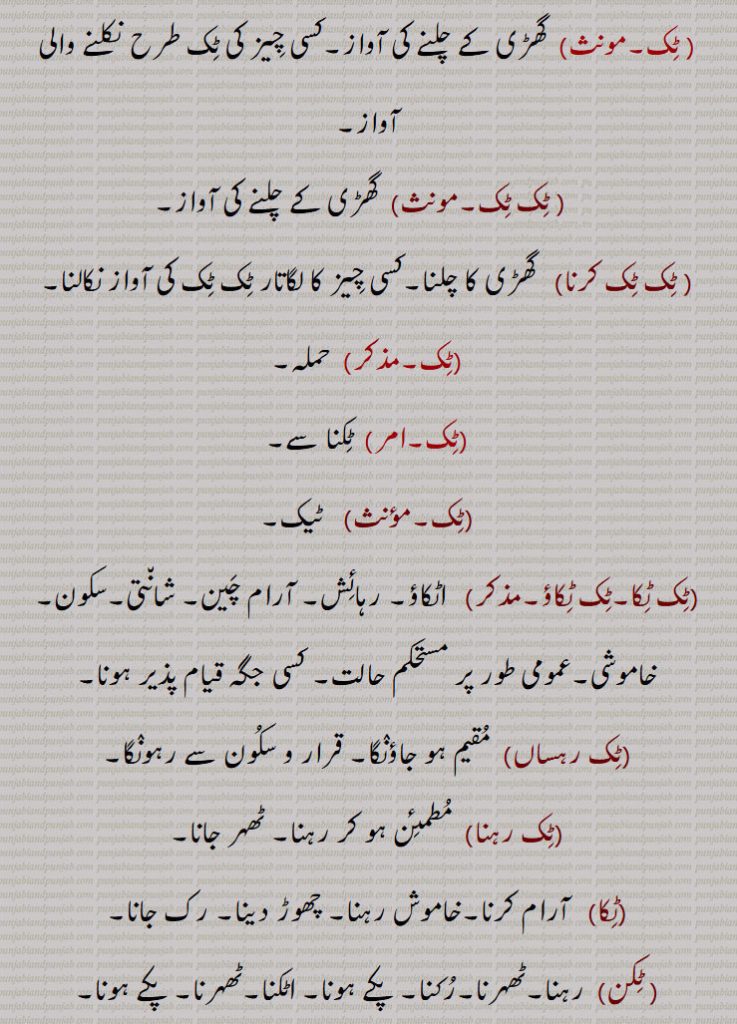 ( ٹِک۔مونث) گھڑی کے چلنے کی آواز۔کسی چِیز کی ٹِک طرح نکلنے والی
آواز۔
( ٹِک ٹِک۔مونث) گھڑی کے چلنے کی آواز۔
( ٹِک ٹِک کرنا) گھڑی کا چلنا۔کسی چِیز کا لگاتار ٹِک ٹِک کی آواز نکالنا۔
(ٹِک۔مذکر) حملہ۔
(ٹِک۔امر) ٹِکنا سے۔
(ٹِک۔مؤنث) ٹیک۔
(ٹِک ٹِکا۔ٹِک ٹِکاؤ۔مذکر) اٹکاؤ۔ رہائِش۔ آرام چَین۔ شانْتی۔سکون۔
خاموشی۔عمومی طور پر مستحکم حالت۔ کسی جگہ قیام پذیر ہونا۔
(ٹِک رہساں) مُقیم ہو جاؤنْگا۔ قرار و سکُون سے رہونْگا۔
(ٹِک رہنا) مُطمئِن ہو کر رہنا۔ ٹھہر جانا۔
(ٹِکا) آرام کرنا۔خاموش رہنا۔ چھوڑ دینا۔ رک جانا۔
( ٹِکن) رہنا۔ٹھہرنا۔رُکنا۔ پکے ہونا۔ اٹکنا۔ٹھہرنا۔ پکے ہونا۔